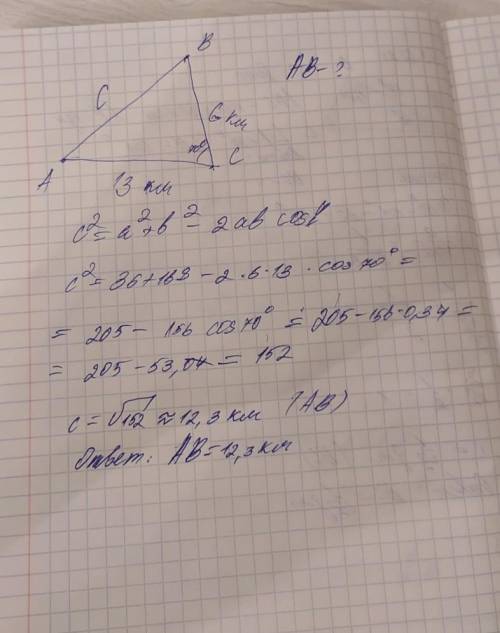 B
AB-?
C
6 км
70°
A
C
13 км
c² = a² + b² - 2ab cos γ
c² = 36 + 169 - 2 · 6 · 13 · cos 70° =
= 205 - 156 cos 70° = 205 - 156 · 0,34 =
= 205 - 53,04 = 152
c = √152 ≈ 12,3 км (AB)
Ответ: AB = 12,3 км